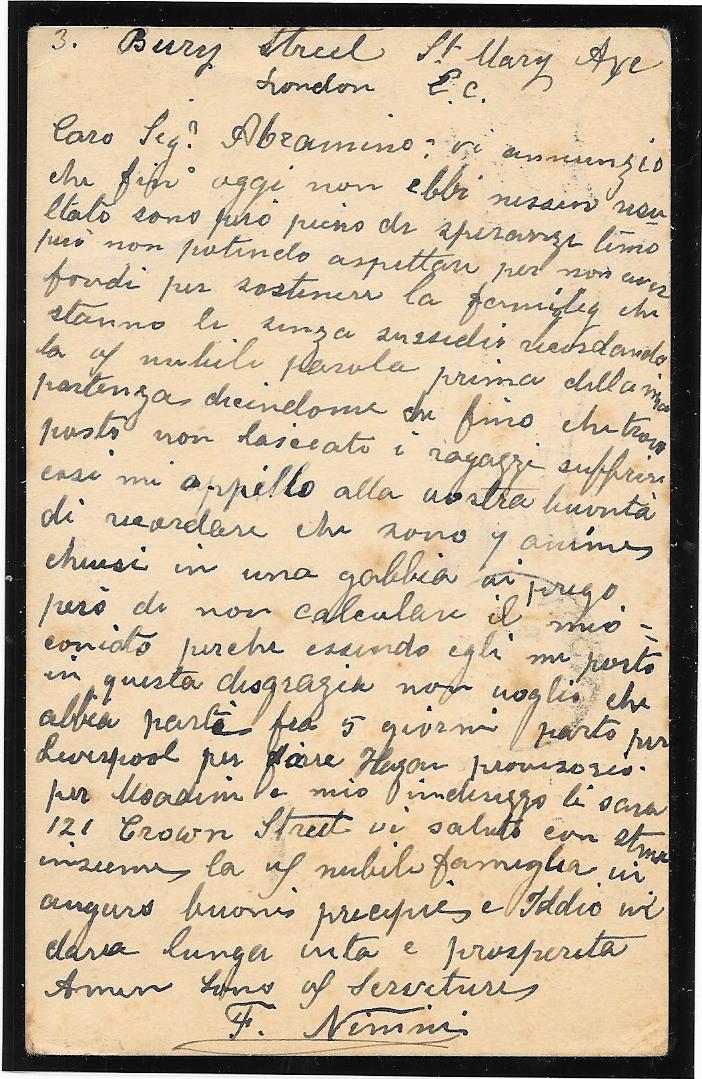 3. Bury Street St Mary Axe
London E.C.
Caro Sigr Abramino: vi annunzio
che fin' oggi non ebbi nessun risu
ltato sono però pieno di speranze temo
però non potendo aspettare per non aver
fondi per sostenere la famiglia che
stanno li senza sussidio ricordando
la vf nubile parola prima della mia
partenza dicindome che fino che trovo
posto non lasciato i ragazzi suffrire
cosi mi appello alla vostra buontà
di ricordare che sono 7 anime
chiusi in una gabbia vi prego
però di non calculare il mio
coniato perche essendo egli mi portò
in questa disgrazia non voglio che
abbia parte fra 5 giorni parto per
Liverpool per Hazan provisorio
per Moadim e mio indirizzo li sara
121 Crown Street vi saluto con stima
insieme la vf nubile famiglia vi
auguro buoni e Iddio vi
daria lunga vita e prosperita
Amen Sono vf Servitore
F. Nimni